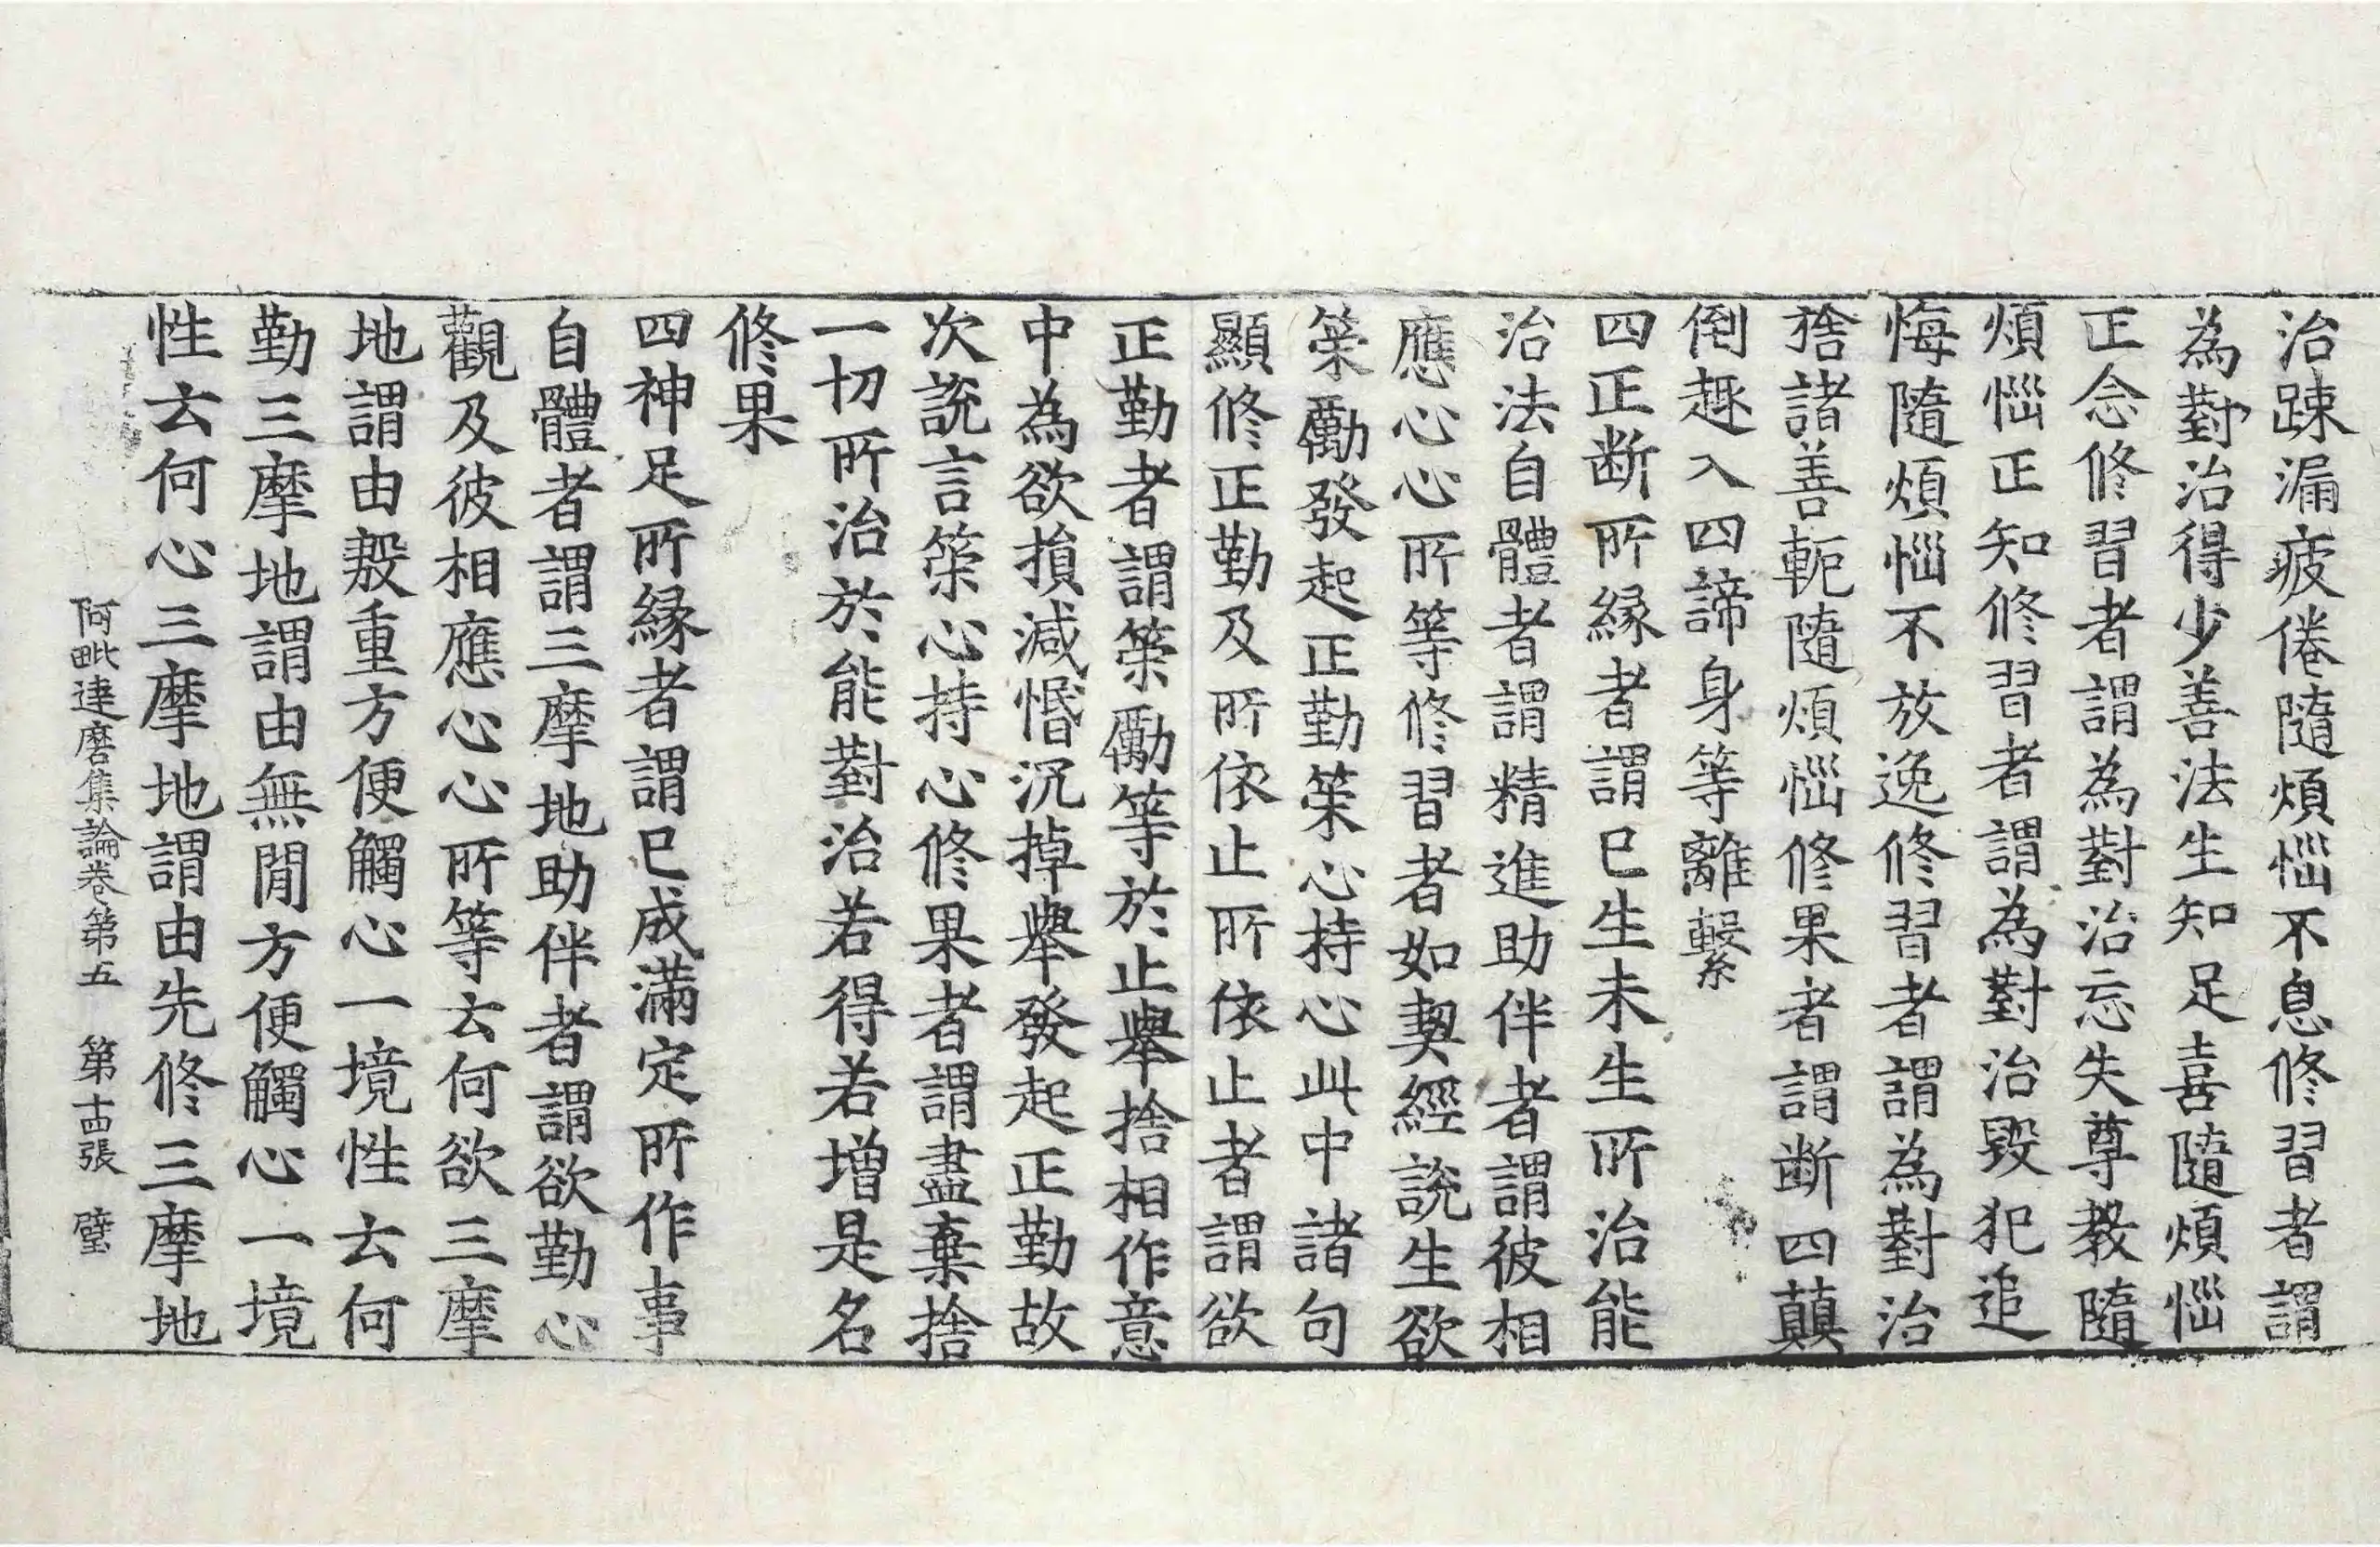 治踈漏疲倦隨煩惱不息修習者謂
為對治得少善法生知足喜隨煩惱
正念修習者謂為對治忘失尊教隨
煩惱正知修習者謂為對治毀犯追
悔隨煩惱不放逸修習者謂為對治
捨諸善軛隨煩惱修果者謂断四顛
倒趣入四諦身等離繫
四正断所縁者謂已生未生所治能
治法自體者謂精進助伴者謂彼相
應心心所等修習者如契經說生欲
策勵發起正勤策心持心此中諸句
顯修正勤及所依止所依止者謂欲
正勤者謂策勵等於止舉捨相作意
中為欲損減惛沉掉舉發起正勤故
次說言策心持心修果者謂盡棄捨
一切所治於能對治若得若增是名
修果
四神足所縁者謂已成滿定所作事
自體者謂三摩地助伴者謂欲勤心
觀及彼相應心心所等云何欲三摩
地謂由慇重方便觸心一境性云何
勤三摩地謂由無間方便觸心一境
性云何心三摩地謂由先修三摩地
阿毗達磨集論卷第五 第十四張 璧